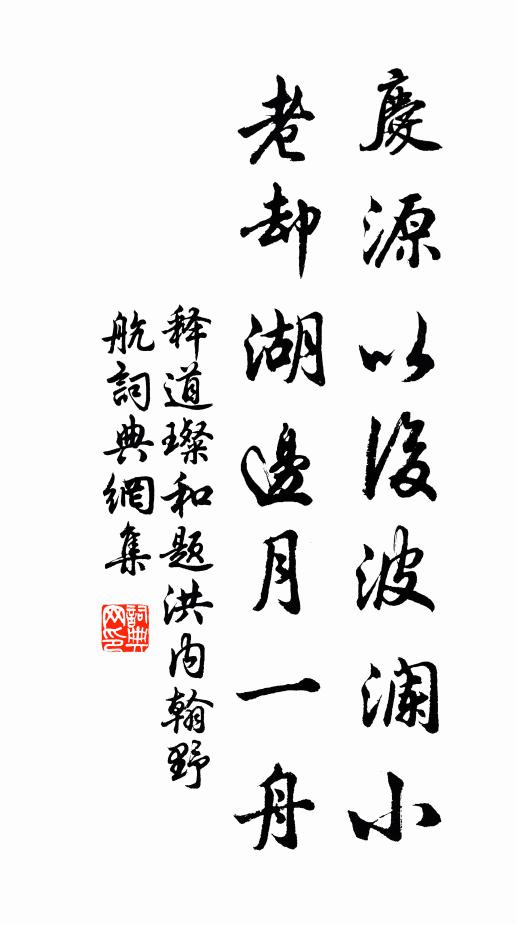 慶源以後波瀾小
老却湖邊月一舟
释道璨和题洪内翰野
航詞典網集
詞典
网印